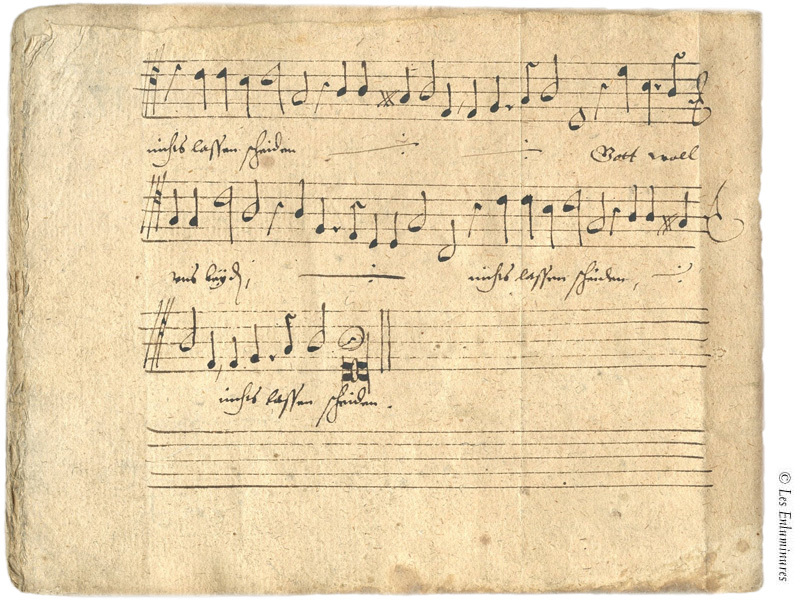 nichts lassen scheiden Gott woll
vns beÿd, nichts lassen scheiden,
nichts lassen scheiden.
© Les Enluminures